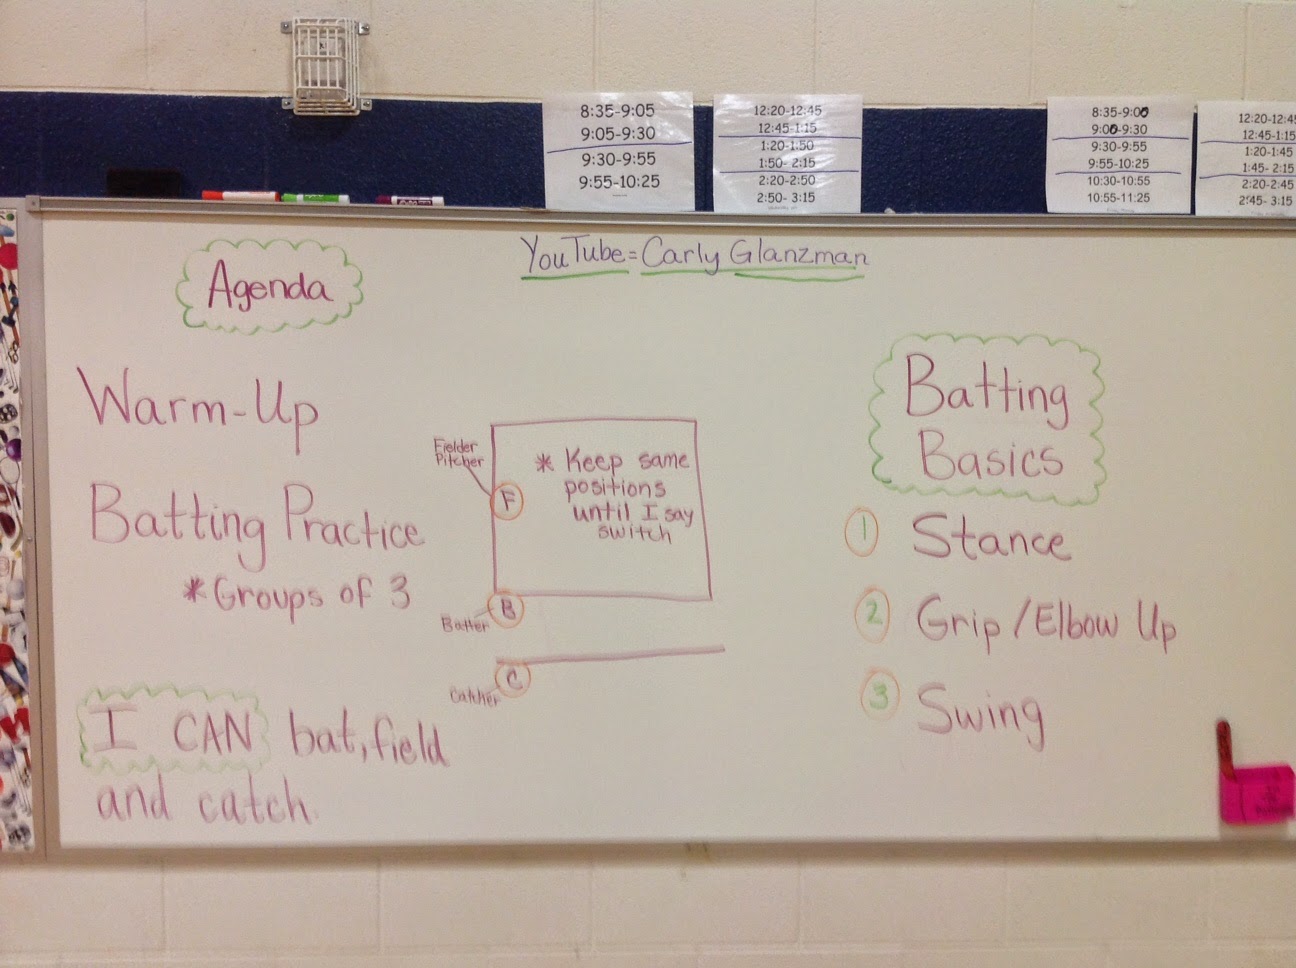 8:35-9:05
9:05-9:30
9:30-9:55
9:55-10:25
12:20-12:45
12:45-1:15
1:20-1:50
1:50- 2:15
2:20-2:50
2:50- 3:15
8:35-9:00
9:00-9:30
9:30-9:55
9:55-10:25
10:30-10:55
10:55-11:25
12:20-12:45
12:45-1:15
1:20-1:45
1:45- 2:15
2:20-2:45
2:45- 3:15
YouTube=Carly Glanzman
Agenda
Warm-Up
Batting Practice
*Groups of 3
I CAN bat, field
and catch.
Fielder
Pitcher
F
* Keep same
positions
until I say
switch
B
Batter
C
Catcher
Batting
Basics
1 Stance
2 Grip/Elbow Up
3 Swing